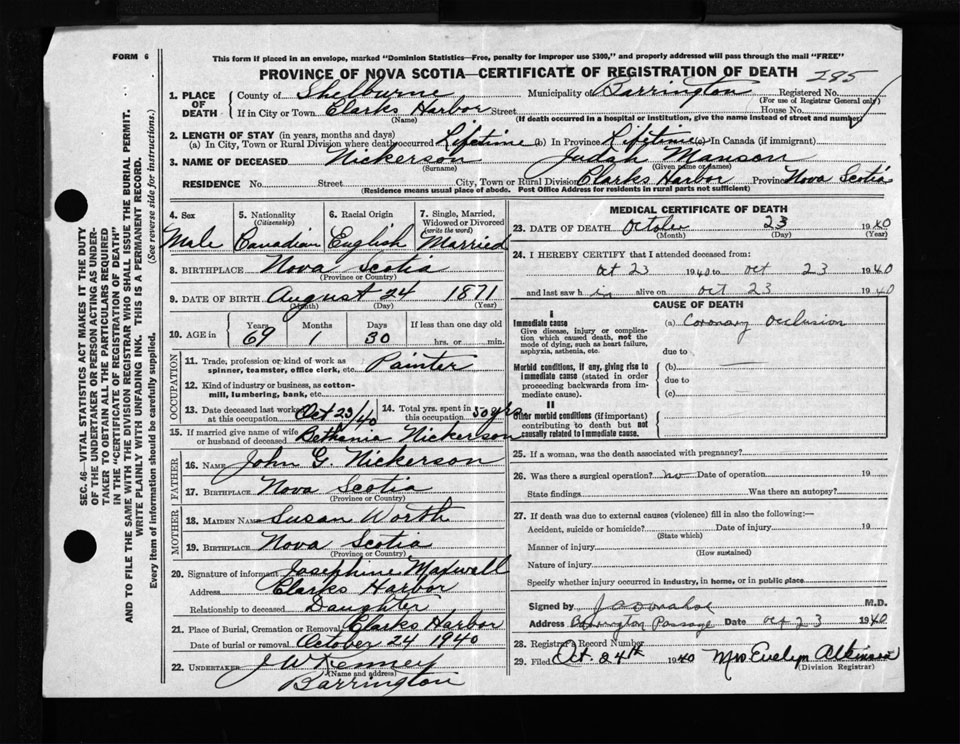 FORM 6
This form if placed in an envelope, marked "Dominion Statistics—Free, penalty for improper use $300," and properly addressed will pass through the mail "FREE"
PROVINCE OF NOVA SCOTIA—CERTIFICATE OF REGISTRATION OF DEATH
1. PLACE OF DEATH { County of Shelburne Municipality of Barrington Registered No. 285
(For use of Registrar General only)
If in City or Town Clarks Harbor Street House No.
(Name) (If death occurred in a hospital or institution, give the name instead of street and number)
2. LENGTH OF STAY (in years, months and days)
(a) In City, Town or Rural Division where death occurred Lifetime (b) In Province Lifetime (c) In Canada (if immigrant)
3. NAME OF DECEASED Nickerson Judah Manson
(Surname) (Given name or names)
RESIDENCE No. Street City, Town or Rural Division Clarks Harbor Province Nova Scotia
(Residence means usual place of abode. Post Office Address for residents in rural parts not sufficient)
4. Sex 5. Nationality (Citizenship) 6. Racial Origin 7. Single, Married, Widowed or Divorced (write the word)
Male Canadian English Married
8. BIRTHPLACE Nova Scotia
(Province or Country)
9. DATE OF BIRTH August 24 1871
(Month) (Day) (Year)
10. AGE in { Years Months Days If less than one day old
69 1 30 hrs. or min.
OCCUPATION
11. Trade, profession or kind of work as spinner, teamster, office clerk, etc. Painter
12. Kind of industry or business, as cotton-mill, lumbering, bank, etc.
13. Date deceased last worked at this occupation Oct 23/40 14. Total yrs. spent in this occupation 50 yrs
15. If married give name of wife or husband of deceased Bethania Nickerson
FATHER
16. NAME John G. Nickerson
17. BIRTHPLACE Nova Scotia
(Province or Country)
MOTHER
18. MAIDEN NAME Susan Worth
19. BIRTHPLACE Nova Scotia
(Province or Country)
20. Signature of informant Josephine Maxwell
Address Clarks Harbor
Relationship to deceased Daughter
21. Place of Burial, Cremation or Removal Clarks Harbor
Date of burial or removal October 24 1940
22. UNDERTAKER J W Kenney
(Name and address)
Barrington
MEDICAL CERTIFICATE OF DEATH
23. DATE OF DEATH October 23 1940
(Month) (Day) (Year)
24. I HEREBY CERTIFY that I attended deceased from:
Oct 23 1940 to Oct 23 1940
and last saw him alive on Oct 23 1940
CAUSE OF DEATH
I
Immediate cause (a) Coronary Occlusion
Give disease, injury or complication which caused death, not the mode of dying, such as heart failure, asphyxia, asthenia, etc.
due to
Morbid conditions, if any, giving rise to immediate cause (stated in order proceeding backwards from immediate cause) (b)
due to
(c)
II
Other morbid conditions (if important) contributing to death but not causally related to immediate cause.
25. If a woman, was the death associated with pregnancy?
26. Was there a surgical operation? no Date of operation 19
State findings Was there an autopsy?
27. If death was due to external causes (violence) fill in also the following:—
Accident, suicide or homicide? Date of injury 19
(State which)
Manner of injury
(How sustained)
Nature of injury
Specify whether injury occurred in industry, in home, or in public place
Signed by M.D.
Address Barrington Passage Date Oct 23 1940
28. Registrar's Record Number
29. Filed Oct. 24th 1940 Mrs Evelyn Atkinson
(Division Registrar)
SEC. 46—VITAL STATISTICS ACT MAKES IT THE DUTY
OF THE UNDERTAKER OR PERSON ACTING AS UNDER-
TAKER TO OBTAIN ALL THE PARTICULARS REQUIRED
IN THE "CERTIFICATE OF REGISTRATION OF DEATH"
AND TO FILE THE SAME WITH THE DIVISION REGISTRAR WHO SHALL ISSUE THE BURIAL PERMIT.
WRITE PLAINLY WITH UNFADING INK. THIS IS A PERMANENT RECORD.
Every item of information should be carefully supplied. (See reverse side for instructions.)